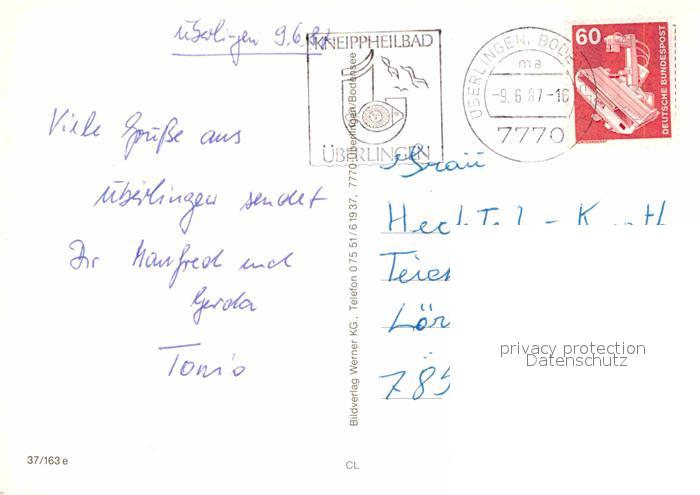 Überlingen 9.6.87
Viele Grüße aus
Überlingen sendet
Dir Manfred und
Gerda
Tonio
37/163 e
KNEIPPHEILBAD
ÜBERLINGEN
Bildverlag Werner KG., Telefon 0 75 51/6 19 37, 7770 Überlingen/Bodensee
CL
ÜBERLINGEN, BODE
ma
-9.6.87-16
7770
60
DEUTSCHE BUNDESPOST
Hechtel-K
Teic
Lör
785
privacy protection
Datenschutz